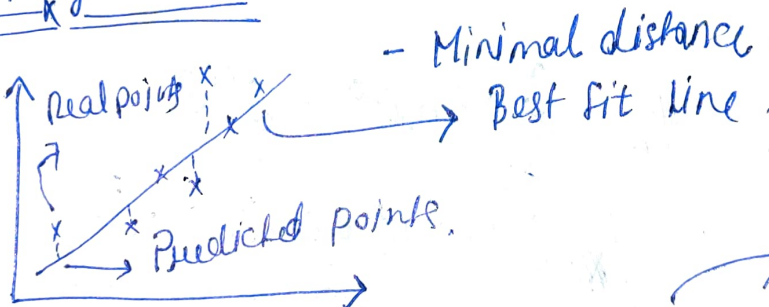 - Minimal distance
Real points
Best fit line.
Predicted points.